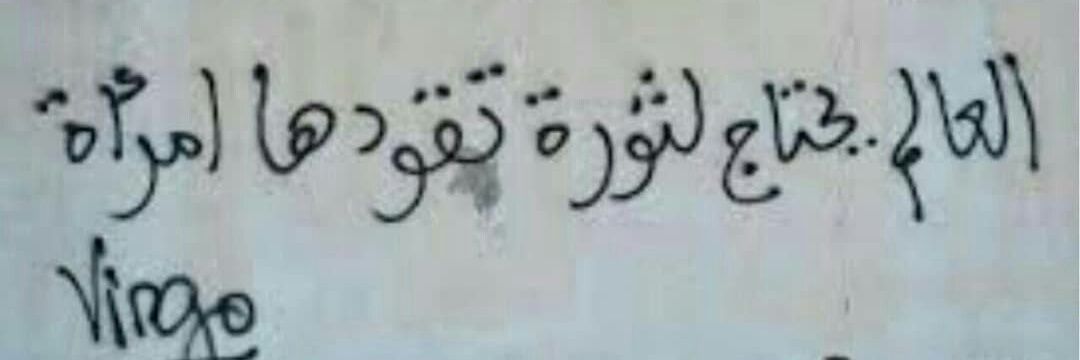 العالم يحتاج لثورة تقودها امرأة
Virgo